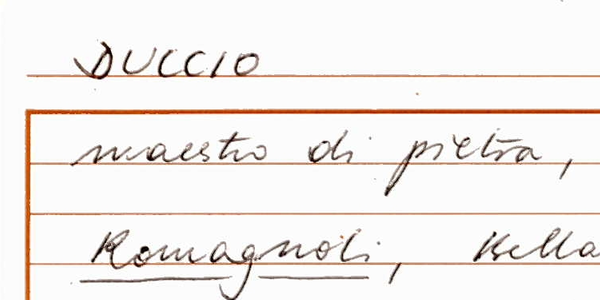 DUCCIO
maestro di pietra,
Romagnoli,